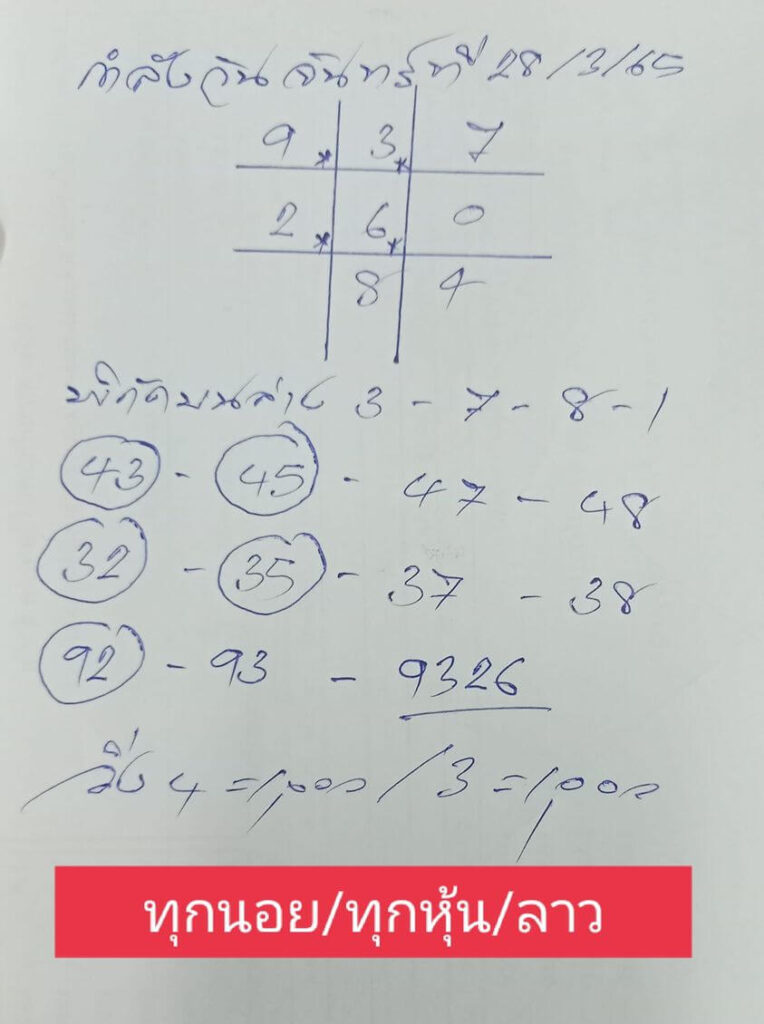 กำลังวันจันทร์ที่ 28/3/65
9* 3* 7
2* 6* 0
8 4
พิกัดบนล่าง 3 - 7 - 8 - 1
43 - 45 - 47 - 48
32 - 35 - 37 - 38
92 - 93 - 9326
วิ่ง 4 = 1,000 / 3 = 1,000
ทุกนอย/ทุกหุ้น/ลาว